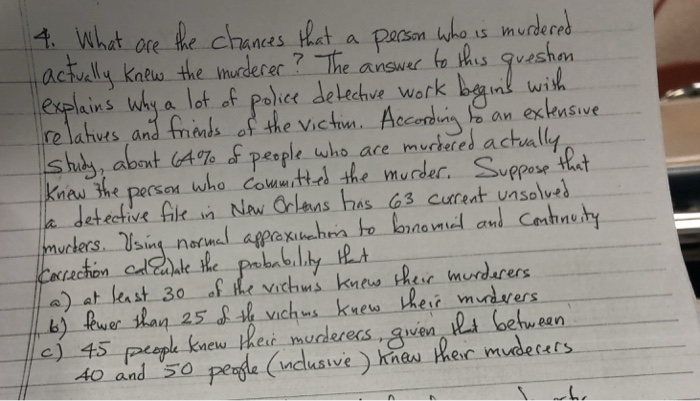 4. What are the chances that a person who is murdered
actually knew the murderer? The answer to this question
explains why a lot of police detective work begins with
relatives and friends of the victim. According to an extensive
study, about 64% of people who are murdered actually
knew the person who committed the murder. Suppose that
a detective file in New Orleans has 63 current unsolved
murders. Using normal approximation to binomial and continuity
correction calculate the probability that
a) at least 30 of the victims knew their murderers
b) fewer than 25 of the victims knew their murderers
c) 45 people knew their murderers, given that between
40 and 50 people (inclusive) knew their murderers